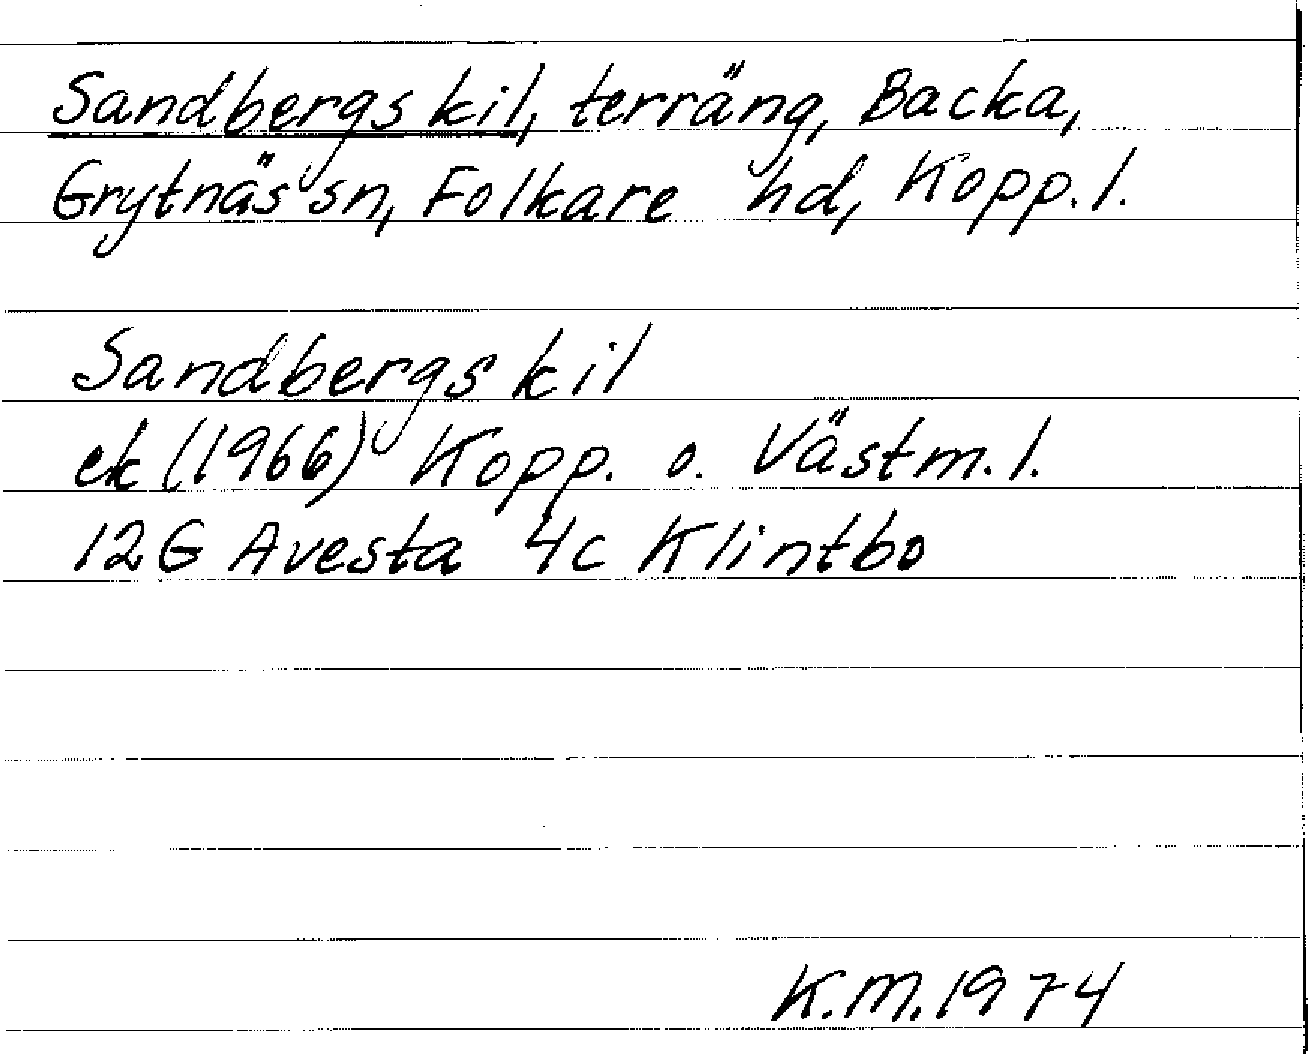 Sandbergs kil, terräng, Backa,
Grytnäs sn, Folkare hd, Kopp. l.
Sandbergs kil
ek (1966) Kopp. o. Västm. l.
12G Avesta 4c Klintbo
K.M. 1974